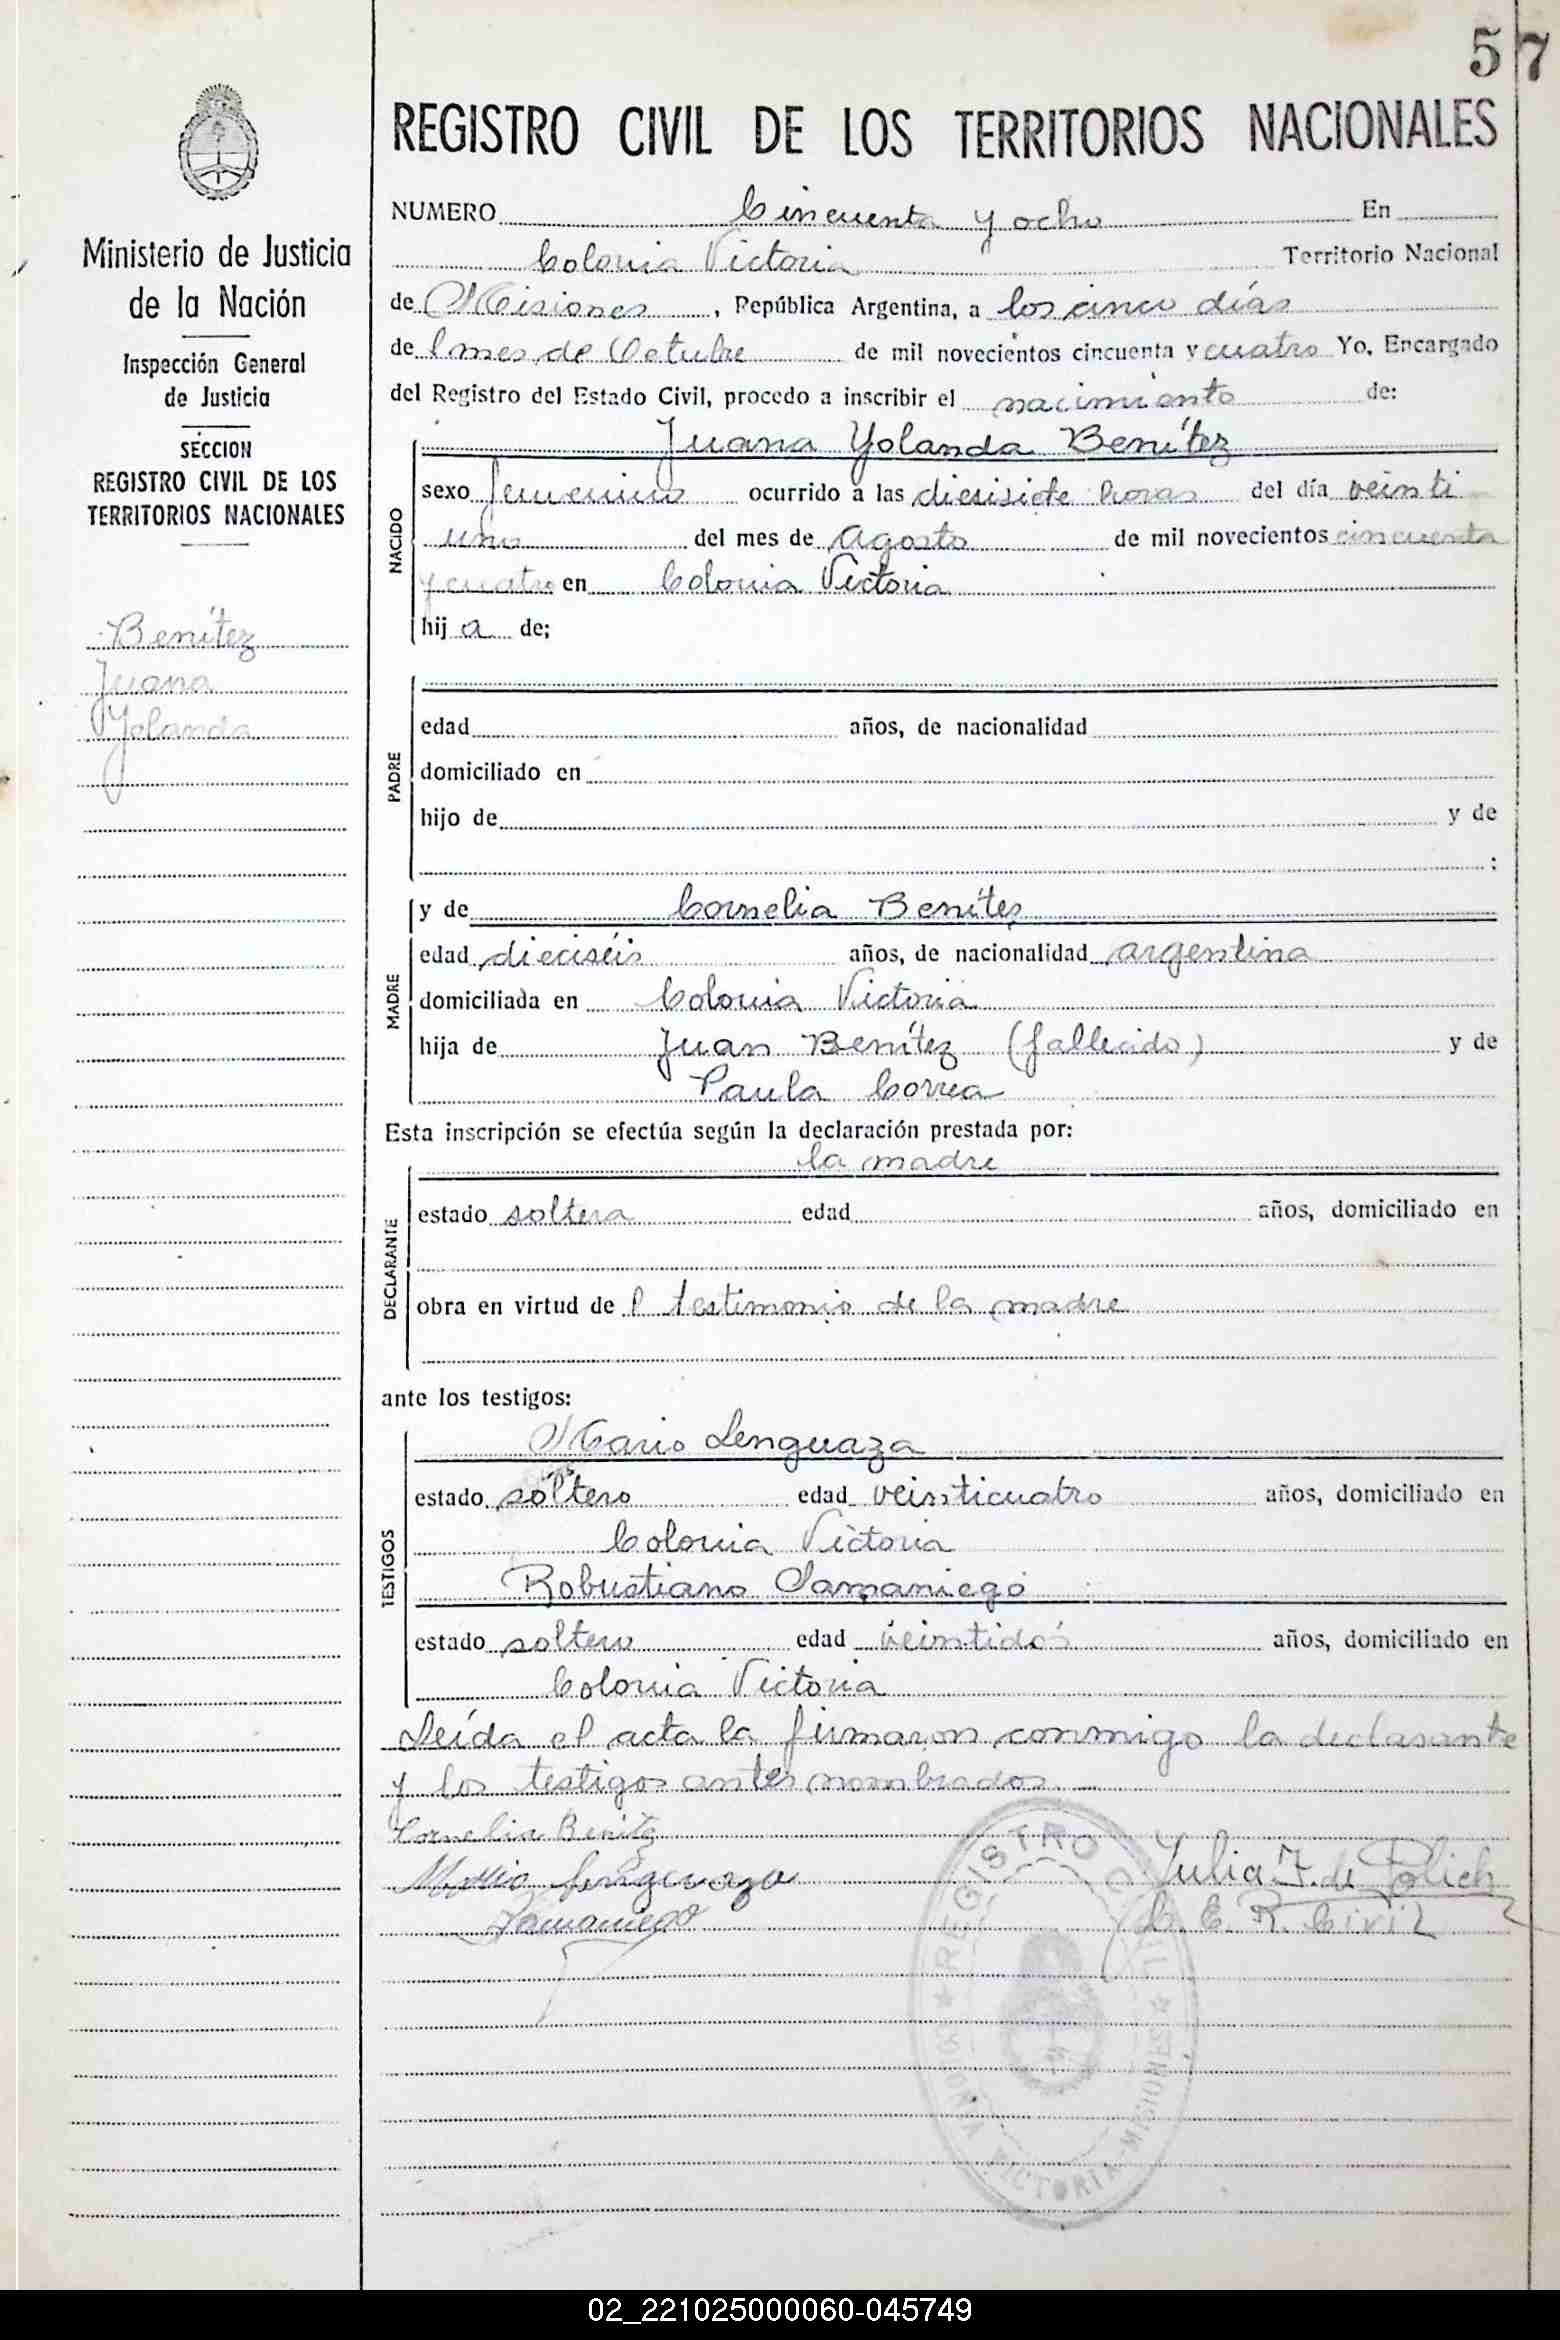 57
Ministerio de Justicia
de la Nación
Inspección General
de Justicia
SECCION
REGISTRO CIVIL DE LOS
TERRITORIOS NACIONALES
Benítez
Juana
Yolanda
REGISTRO CIVIL DE LOS TERRITORIOS NACIONALES
NUMERO Cincuenta y ocho En
Colonia Victoria Territorio Nacional
de Misiones, República Argentina, a los cinco días
de l mes de Octubre de mil novecientos cincuenta y cuatro Yo, Encargado
del Registro del Estado Civil, procedo a inscribir el nacimiento de:
NACIDO
Juana Yolanda Benítez
sexo femenino ocurrido a las diesisiete horas del día veinti
uno del mes de Agosto de mil novecientos cincuenta
y cuatro en Colonia Victoria
hij a de;
PADRE
edad años, de nacionalidad
domiciliado en
hijo de y de
;
MADRE
y de Cornelia Benítez
edad dieciséis años, de nacionalidad argentina
domiciliada en Colonia Victoria
hija de Juan Benítez (fallecido) y de
Paula Correa
Esta inscripción se efectúa según la declaración prestada por:
DECLARANTE
la madre
estado soltera edad años, domiciliado en
obra en virtud de l testimonio de la madre
ante los testigos:
TESTIGOS
Mario Lenguaza
estado soltero edad veinticuatro años, domiciliado en
Colonia Victoria
Robustiano Samaniego
estado soltero edad veintidos años, domiciliado en
Colonia Victoria
Leída el acta la firmaron conmigo la declarante
y los testigos antes nombrados.
Cornelia Benitz
Mario Lenguaza
Samaniego
Julia F. de Polich
E. R. Civil
REGISTRO CIVIL
COLONIA VICTORIA - MISIONES
02_221025000060-045749